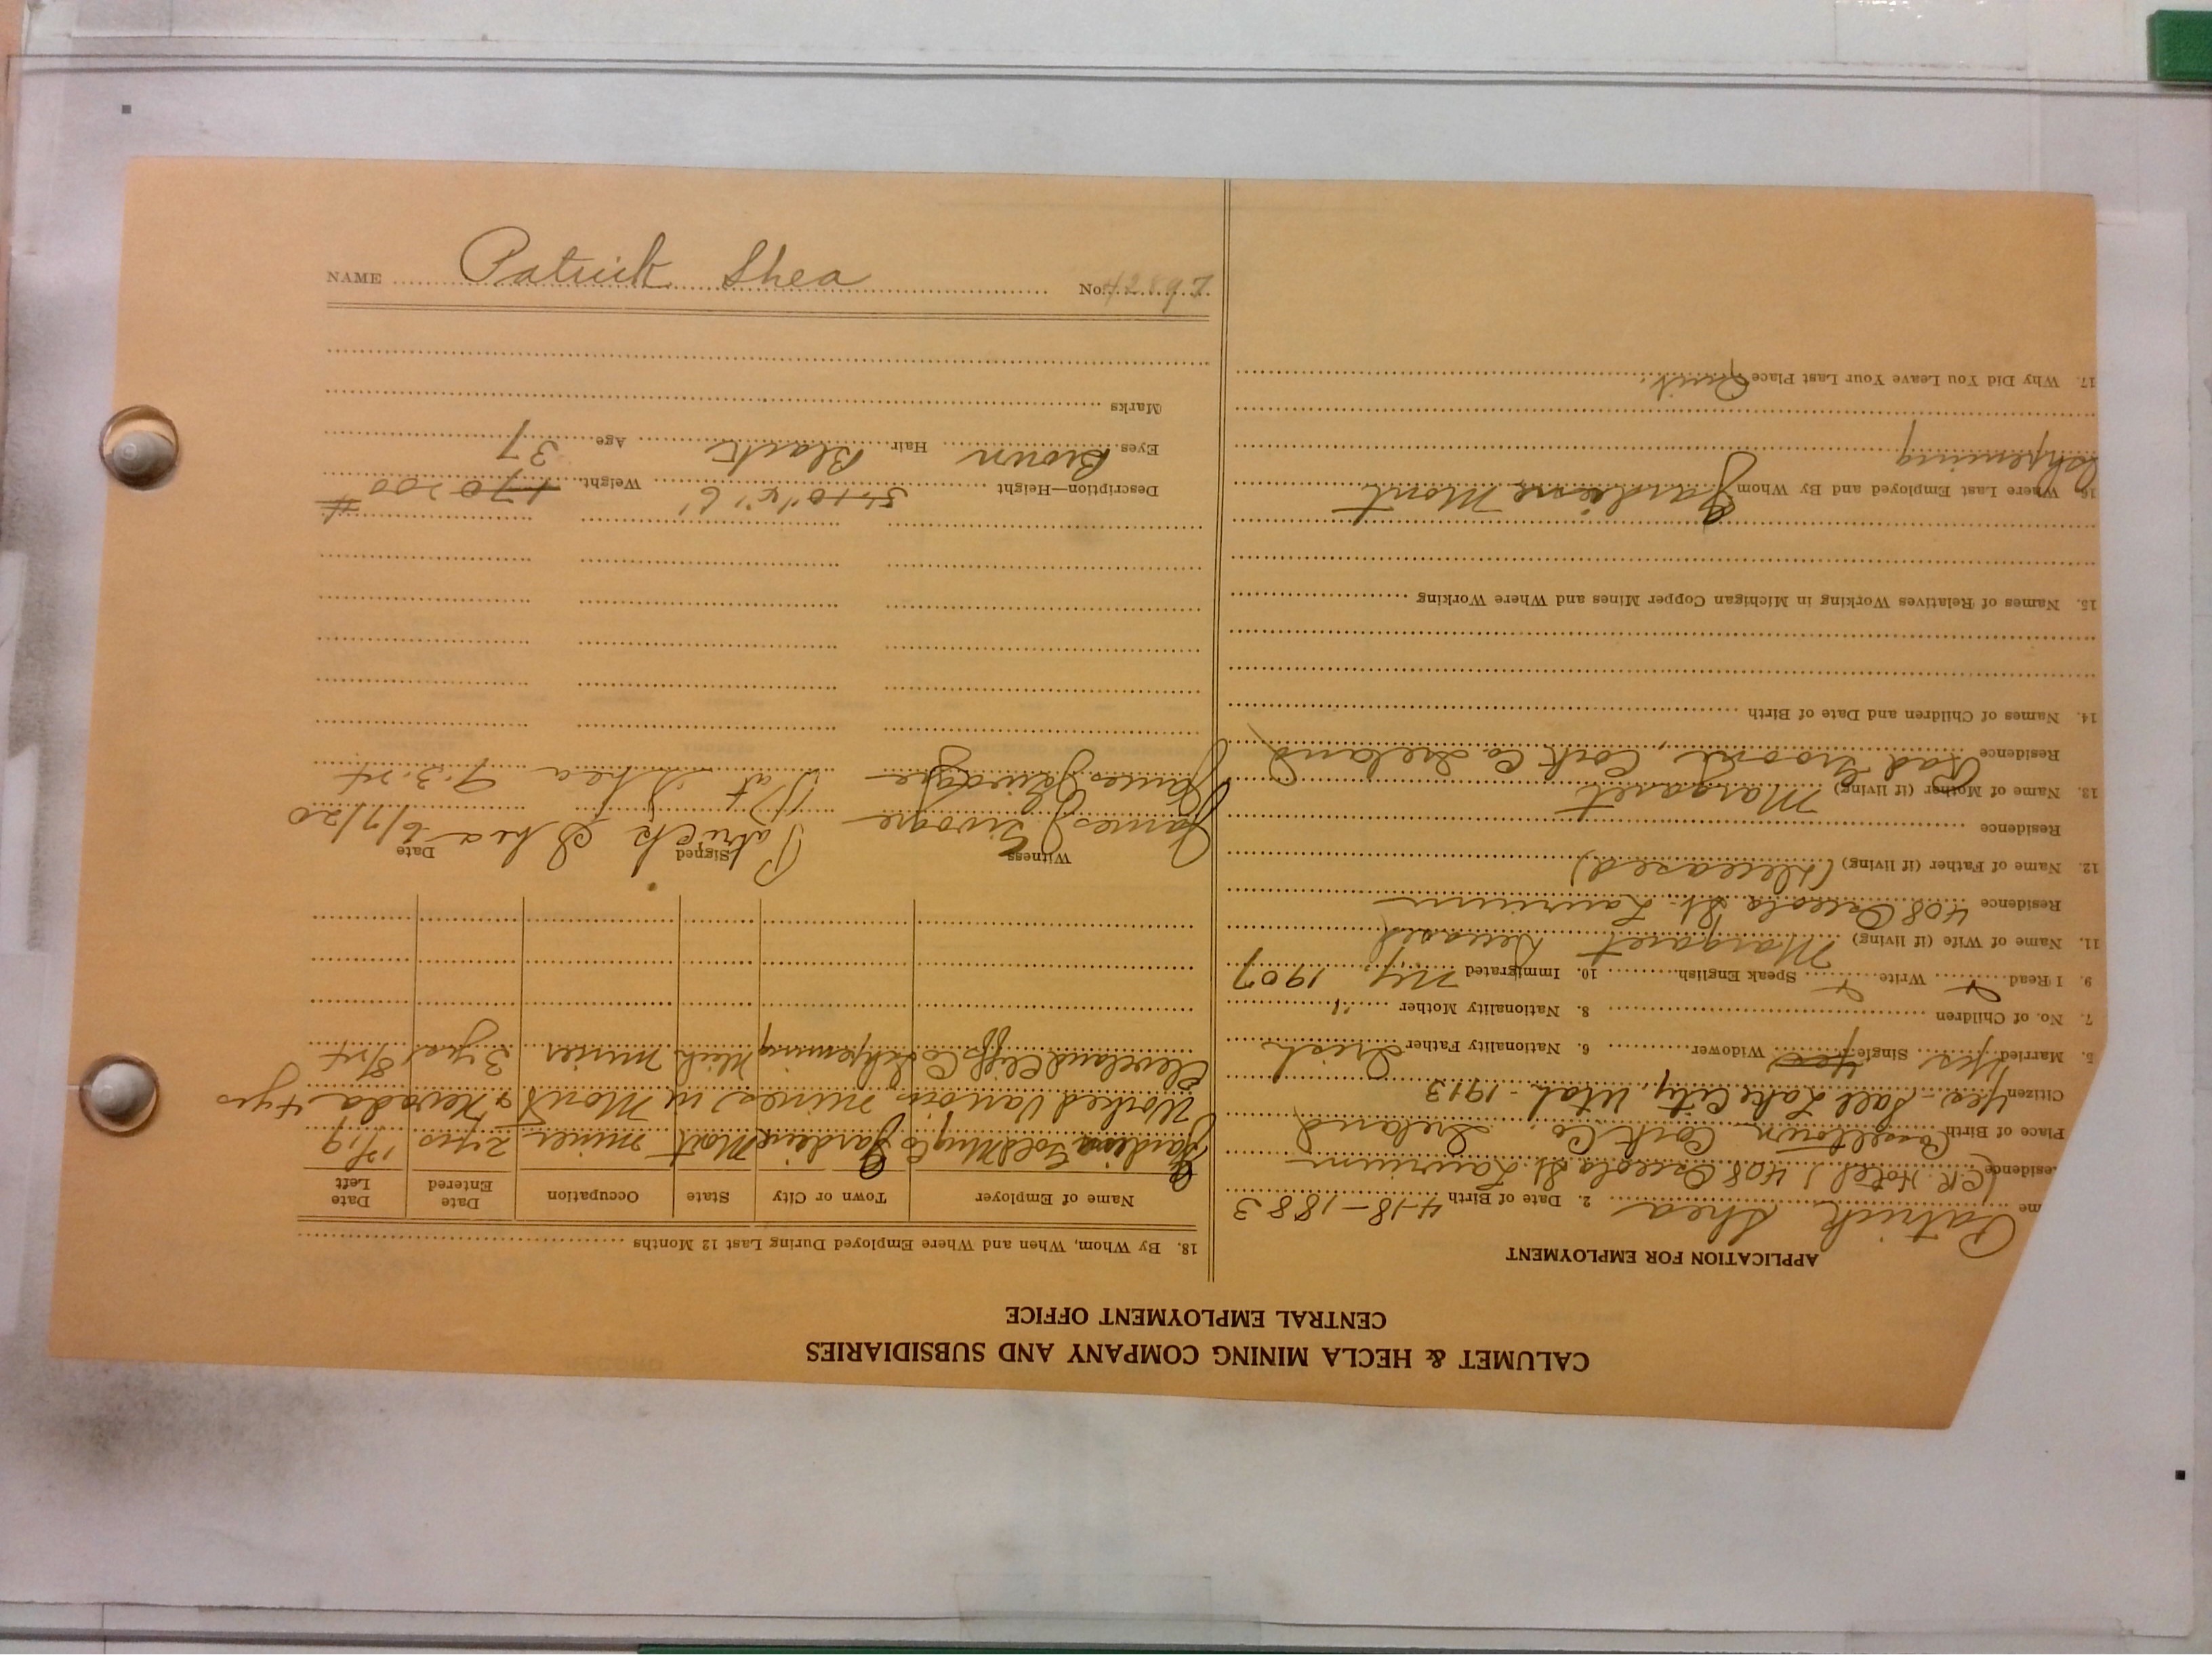 CALUMET & HECLA MINING COMPANY AND SUBSIDIARIES
CENTRAL EMPLOYMENT OFFICE
APPLICATION FOR EMPLOYMENT
me Patrick Shea 2. Date of Birth 4-18-1883
esidence (CK Hotel) 408 Osceola St. Laurium
Place of Birth Casseltown Cork Co. Ireland
Citizen Yes - Salt Lake City, Utah - 1913
5. Married yes Single yes Widower 6. Nationality Father Irish
7. No. of Children 8. Nationality Mother "
9. I Read Write Speak English 10. Immigrated N.Y. 1907
11. Name of Wife (if living) Margaret Deceased
Residence 408 Osceola St. Laurium
12. Name of Father (if living) (Deceased)
Residence
13. Name of Mother (if living) Margaret
Residence Cork Co. Ireland
14. Names of Children and Date of Birth
15. Names of Relatives Working in Michigan Copper Mines and Where Working
16. Where Last Employed and By Whom Jardine Mont
Ishpeming
17. Why Did You Leave Your Last Place Quit.
18. By Whom, When and Where Employed During Last 12 Months
Name of Employer Town or City State Occupation Date Entered Date Left
Jardine Gold Mng Co Jardine Mont miner 2 yrs
Worked various mines in Mont & Nevada 4 yrs
Cleveland Cliffs Co Ishpeming Mich miner 3 yrs
Witness Signed Date
James Patrick Shea 6/7/20
James Pat Shea 9.3.24
Description—Height 5' 10" 6' Weight 170 200 #
Eyes Brown Hair Black Age 37
Marks
NAME Patrick Shea No. 42897